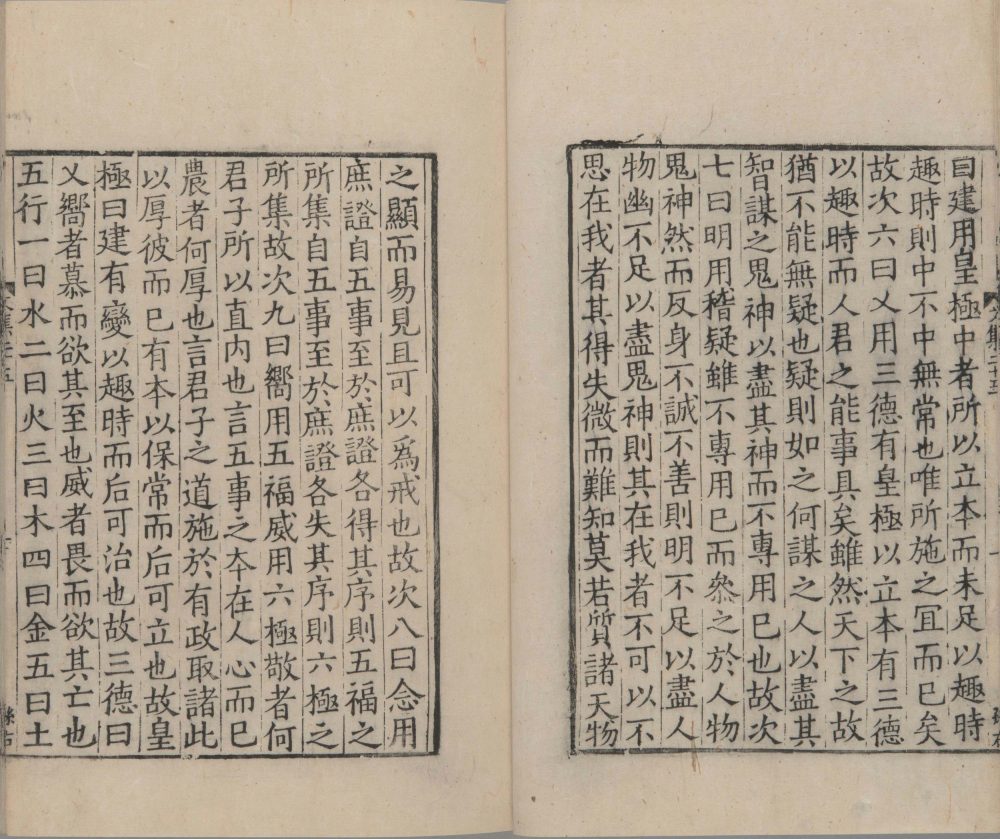 曰建用皇極中者所以立本而未足以趣時
趣時則中不中無常也唯所施之冝而巳矣
故次六曰乂用三德有皇極以立本有三德
以趣時而人君之能事具矣雖然天下之故
猶不能無疑也疑則如之何謀之人以盡其
智謀之鬼神以盡其神而不專用巳也故次
七曰明用稽疑雖不專用巳而叅之於人物
鬼神然而反身不誠不善則明不足以盡人
物幽不足以盡鬼神則其在我者不可以不
思在我者其得失微而難知莫若質諸天物
之顯而易見且可以爲戒也故次八曰念用
庶證自五事至於庶證各得其序則五福之
所集自五事至於庶證各失其序則六極之
所集故次九曰嚮用五福威用六極敬者何
君子所以直内也言五事之夲在人心而巳
農者何厚也言君子之道施於有政取諸此
以厚彼而巳有本以保常而后可立也故皇
極曰建有變以趣時而后可治也故三德曰
乂嚮者慕而欲其至也威者畏而欲其亡也
五行一曰水二曰火三曰木四曰金五曰土